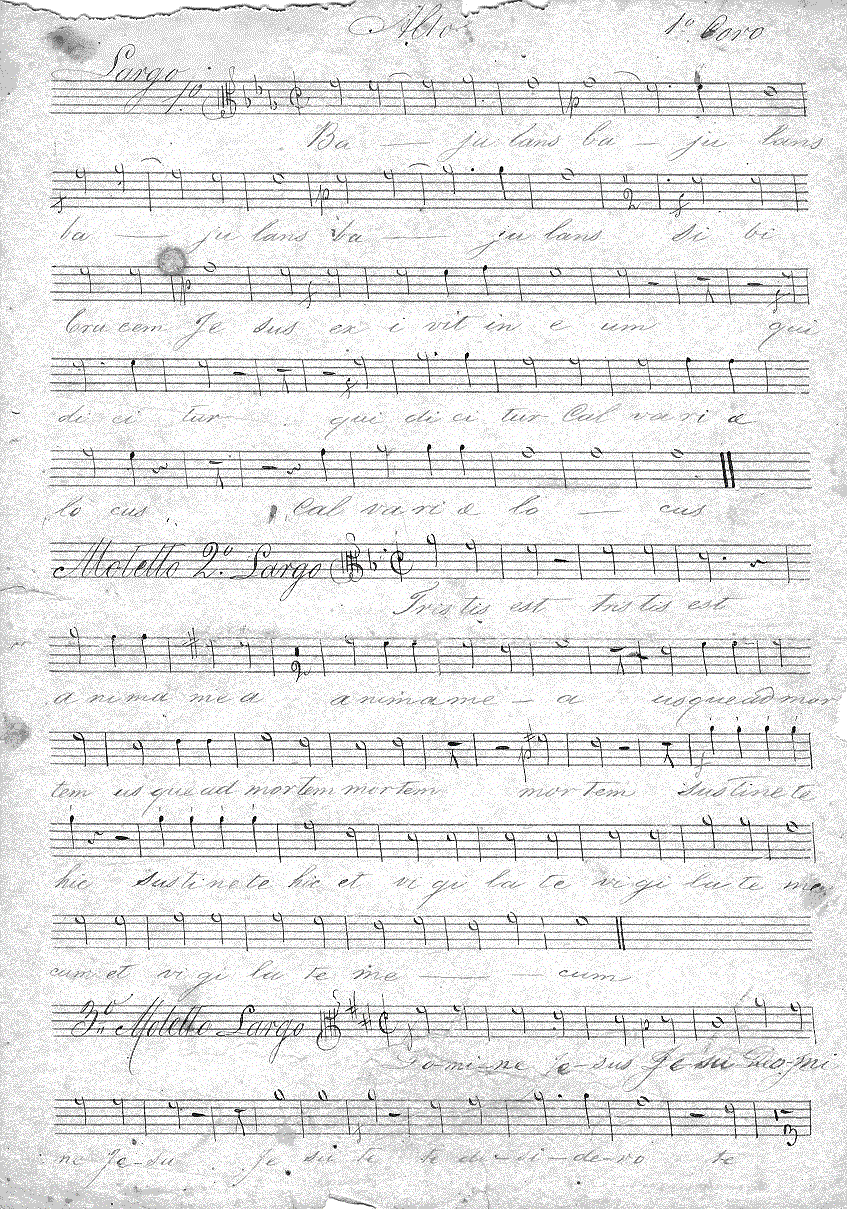 Alto 1º Coro
Largo 1.º
Ba — ju lans ba — ju lans
ba — ju lans ba — ju lans si bi
Cru cem Je sus ex i vit in e um qui
di ci tur qui di ci tur Cal va ri æ
lo cus Cal va ri æ lo — cus
Motetto 2.º Largo
Tris tis est tris tis est
a nima me a anima me - a usque ad mor
tem us que ad mortem mortem mortem sustine te
hic sustinete hic et vi gi la te vi gi la te me
cum et vi gi la te me — — cum
3.º Motetto Largo
Do-mi-ne Je-sus Je su Do-mi
ne Je-su Je su te te de-si-de-ro te